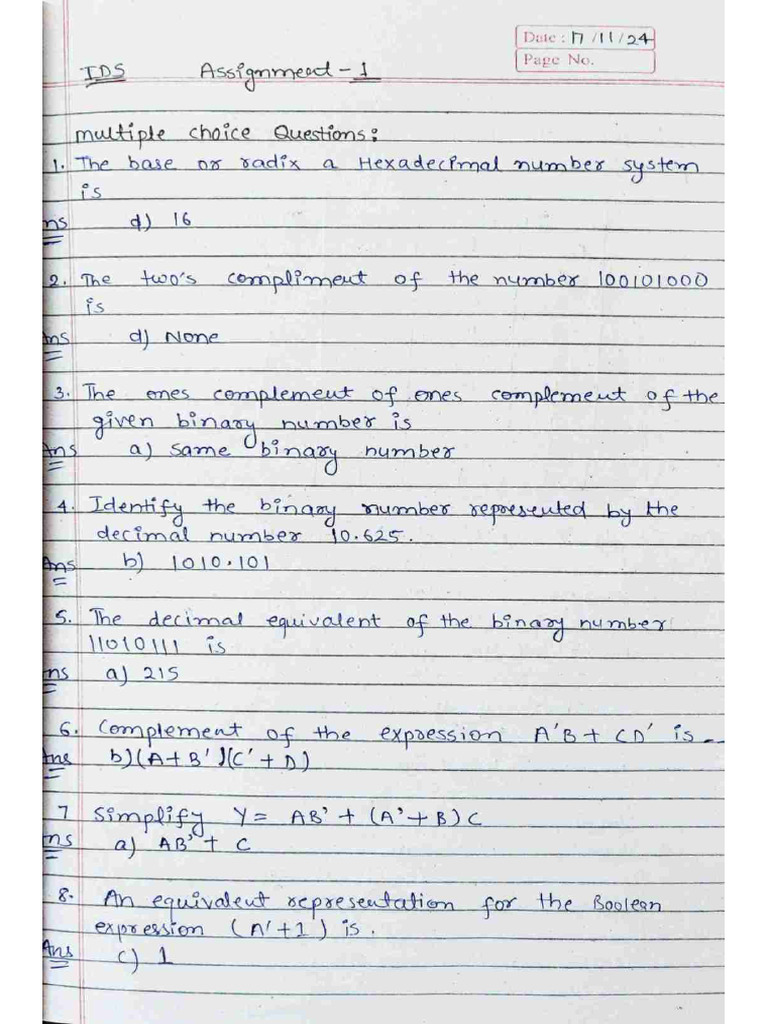 Date : 17/11/24
Page No.
IDS Assignment - 1
multiple choice Questions:
1. The base or radix a Hexadecimal number system
is
ns d) 16
2. The two's compliment of the number 100101000
is
Ans d) None
3. The ones complement of ones complement of the
given binary number is
Ans a) same binary number
4. Identify the binary number represented by the
decimal number 10.625.
Ans b) 1010.101
5. The decimal equivalent of the binary number
11010111 is
ns a) 215
6. Complement of the expression A'B + CD' is
Ans b) (A+B')(C'+D)
7 Simplify Y = AB' + (A'+B)C
ns a) AB' + C
8. An equivalent representation for the Boolean
expression (A'+1) is.
Ans c) 1